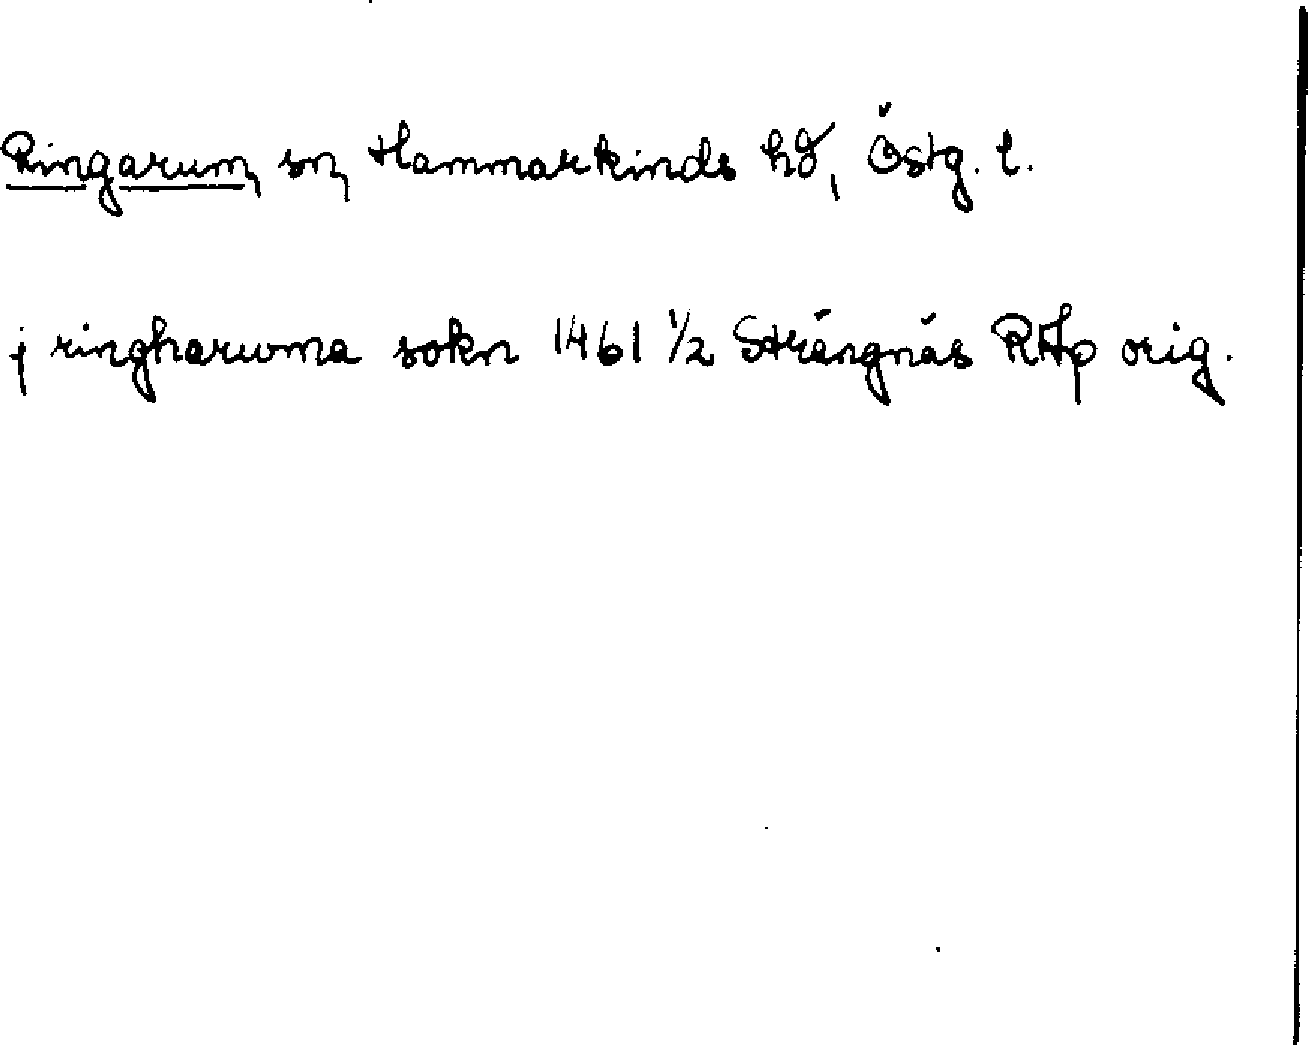 Ringarum, sn, Hammarkinds hd, Östg. l.
j ringharwma sokn 1461 1/2 Strängnäs RAp orig.